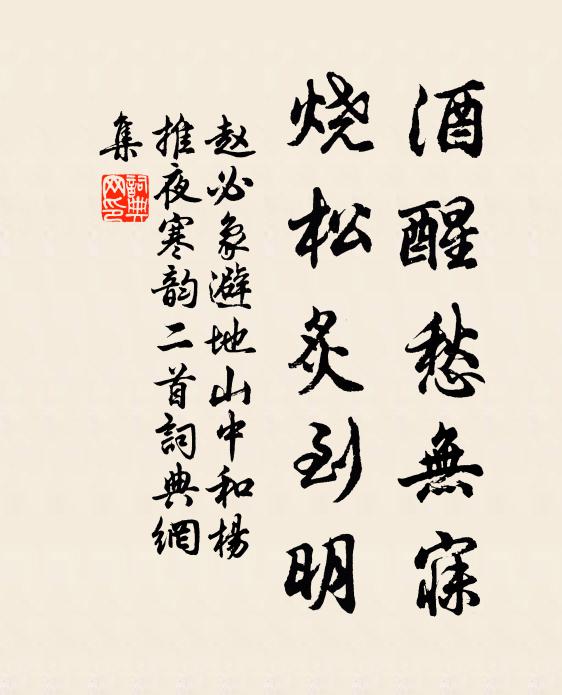 酒醒愁無寐
烧松炙到明
赵必象避地山中和楊
推夜寒韵二首詞典網
集
詞典
网印